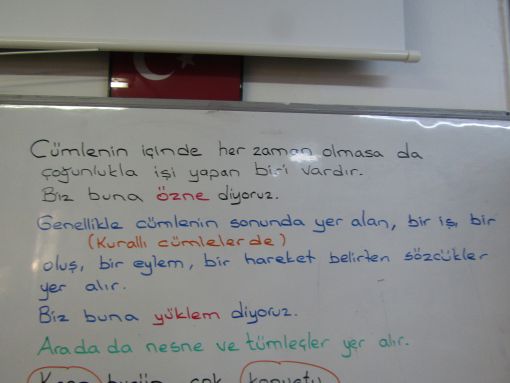 Cümlenin içinde her zaman olmasa da
çoğunlukla işi yapan biri vardır.
Biz buna özne diyoruz.
Genellikle cümlenin sonunda yer alan, bir iş, bir
(Kurallı cümlelerde)
oluş, bir eylem, bir hareket belirten sözcükler
yer alır.
Biz buna yüklem diyoruz.
Arada da nesne ve tümleçler yer alır.